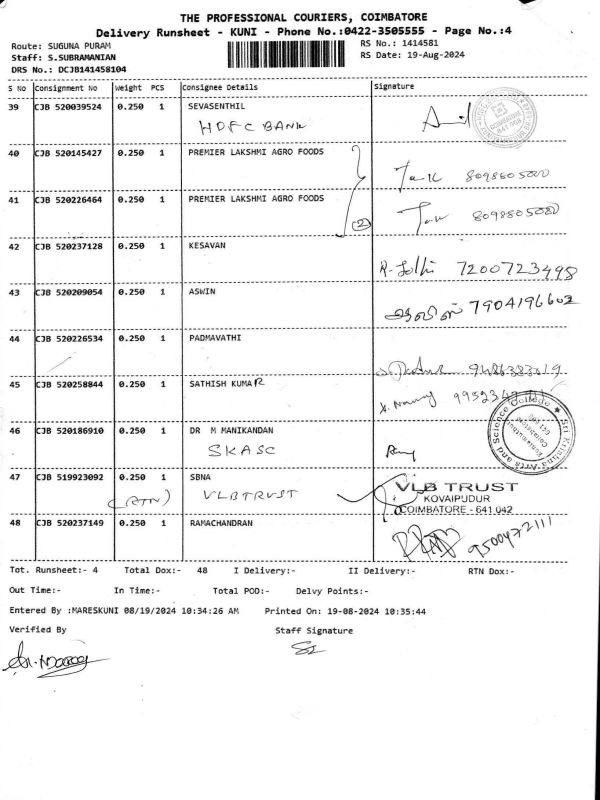 THE PROFESSIONAL COURIERS, COIMBATORE
Delivery Runsheet - KUNI - Phone No.:0422-3505555 - Page No.:4
Route: SUGUNA PURAM
RS No.: 1414581
Staff: S.SUBRAMANIAN
RS Date: 19-Aug-2024
DRS No.: DCJB141458104
S No Consignment No Weight PCS Consignee Details Signature
39 CJB 520039524 0.250 1 SEVASENTHIL
HDFC BANK
40 CJB 520145427 0.250 1 PREMIER LAKSHMI AGRO FOODS
8098805080
41 CJB 520226464 0.250 1 PREMIER LAKSHMI AGRO FOODS
(2) 8098805080
42 CJB 520237128 0.250 1 KESAVAN
7200723498
43 CJB 520209054 0.250 1 ASWIN
7904196602
44 CJB 520226534 0.250 1 PADMAVATHI
45 CJB 520258844 0.250 1 SATHISH KUMAR
Sri Krishna Arts and Science College
46 CJB 520186910 0.250 1 DR M MANIKANDAN
SKASC
47 CJB 519923092 0.250 1 SBNA
(RTN) VLBTRUST
VLB TRUST
KOVAIPUDUR
COIMBATORE - 641 042
48 CJB 520237149 0.250 1 RAMACHANDRAN
9500472111
Tot. Runsheet:- 4 Total Dox:- 48 I Delivery:- II Delivery:- RTN Dox:-
Out Time:- In Time:- Total POD:- Delvy Points:-
Entered By :MARESKUNI 08/19/2024 10:34:26 AM Printed On: 19-08-2024 10:35:44
Verified By Staff Signature